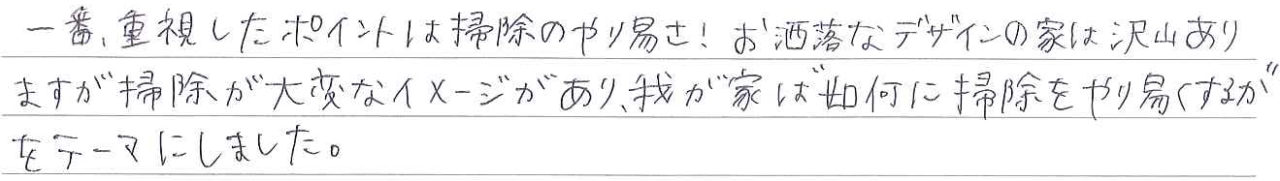 一番、重視したポイントは掃除のやり易さ！お洒落なデザインの家は沢山あり
ますが掃除が大変なイメージがあり、我が家は〝如何に掃除をやり易くするか〟
をテーマにしました。